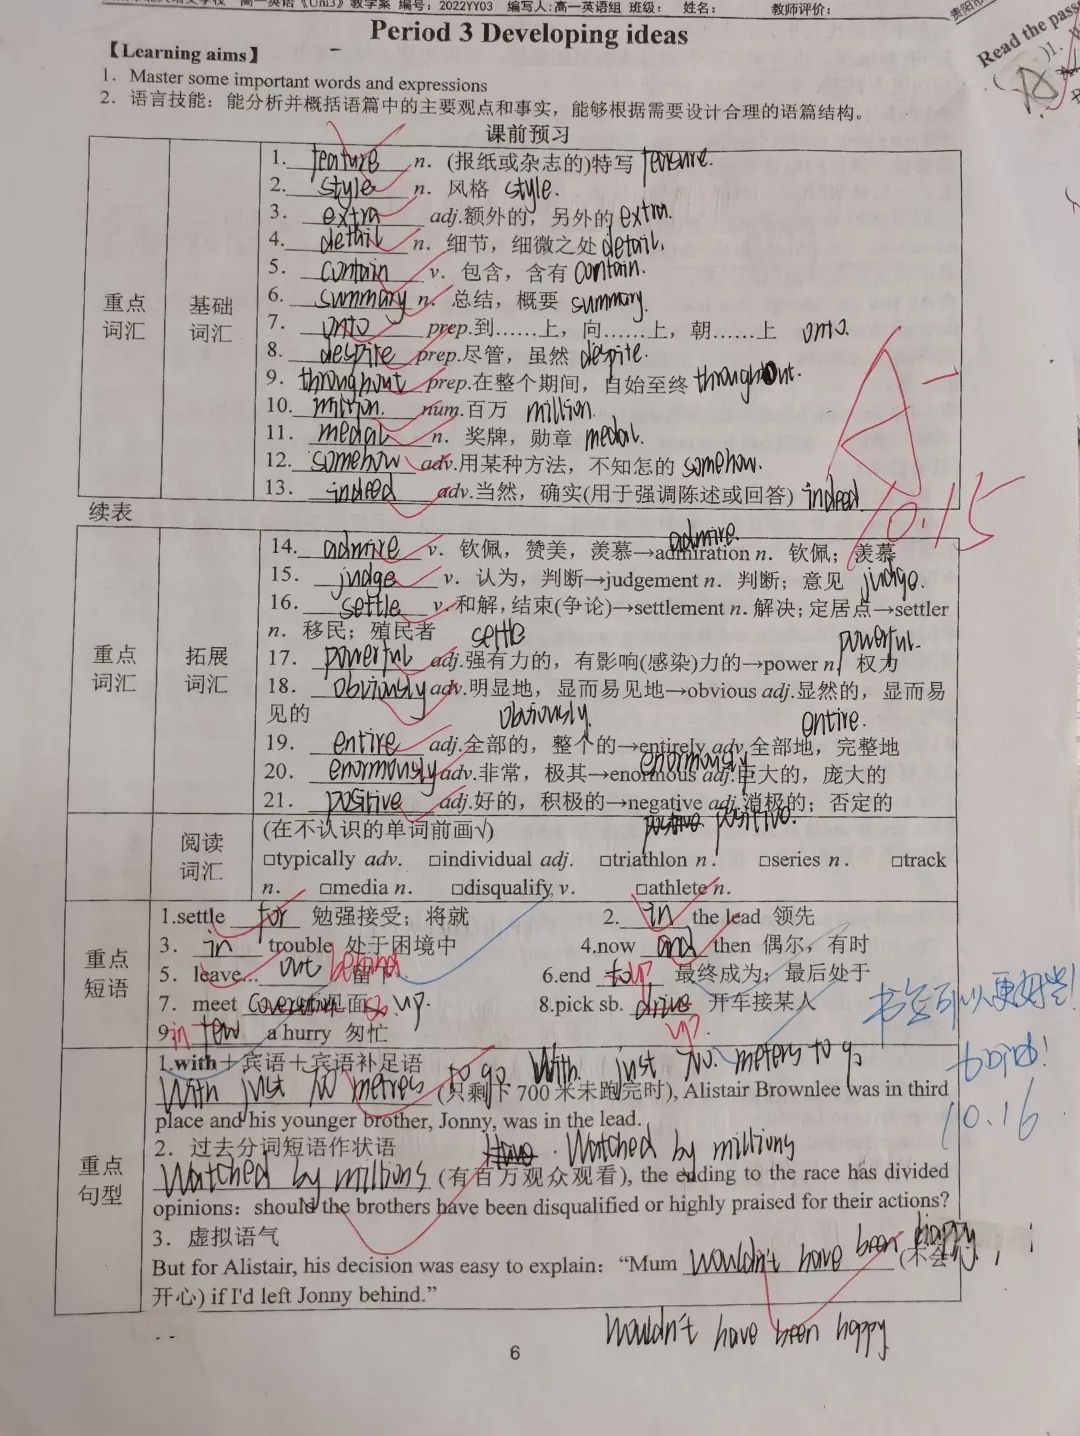 高一英语《Uni3》教学案 编号：2022YY03 编写人:高一英语组 班级： 姓名： 教师评价：
Period 3 Developing ideas
Read the pass
【Learning aims】
1. Master some important words and expressions
2. 语言技能：能分析并概括语篇中的主要观点和事实，能够根据需要设计合理的语篇结构。
课前预习
重点词汇
基础词汇
1. feature n. (报纸或杂志的)特写
2. style n. 风格 style.
3. extra adj.额外的，另外的 extra.
4. detail n. 细节，细微之处 detail.
5. contain v. 包含，含有 contain.
6. summary n. 总结，概要 summary.
7. onto prep.到……上，向……上，朝……上 onto.
8. despite prep.尽管，虽然 despite.
9. throughout prep.在整个期间，自始至终 throughout.
10. million. num.百万 million.
11. medal n. 奖牌，勋章 medal.
12. somehow adv.用某种方法，不知怎的 somehow.
13. indeed adv.当然，确实(用于强调陈述或回答) indeed
A-
10.15
续表
重点词汇
拓展词汇
admire.
14. admire v. 钦佩，赞美，羡慕→admiration n. 钦佩；羡慕
15. judge v. 认为，判断→judgement n. 判断；意见 judge.
16. settle v.和解,结束(争论)→settlement n.解决;定居点→settler
n. 移民；殖民者 settle powerful.
17. powerful adj.强有力的，有影响(感染)力的→power n. 权力
18. obviously adv.明显地，显而易见地→obvious adj.显然的，显而易
见的 obviously. entire.
19. entire adj.全部的，整个的→entirely adv.全部地，完整地
enormously
20. enormously adv.非常，极其→enormous adj.巨大的，庞大的
21. positive adj.好的，积极的→negative adj.消极的；否定的
positive.
阅读词汇
(在不认识的单词前画√)
□typically adv. □individual adj. □triathlon n. □series n. □track
n. □media n. □disqualify v. □athlete n.
重点短语
1.settle for 勉强接受；将就 2. in the lead 领先
3. in trouble 处于困境中 4.now and then 偶尔，有时
5. leave... out behind 留下 6.end to up 最终成为；最后处于
7. meet 见面 up. 8.pick sb. drive 开车接某人
up?
9. in few a hurry 匆忙
书写可以更好些!
10.16
重点句型
1.with＋宾语＋宾语补足语 With just 700 meters to go
With just 700 metres to go (只剩下 700 米未跑完时), Alistair Brownlee was in third
place and his younger brother, Jonny, was in the lead.
2. 过去分词短语作状语 Watched by millions
Watched by millions (有百万观众观看), the ending to the race has divided
opinions: should the brothers have been disqualified or highly praised for their actions?
3. 虚拟语气
But for Alistair, his decision was easy to explain: “Mum wouldn't have been happy (不会
开心) if I'd left Jonny behind.”
wouldn't have been happy
6